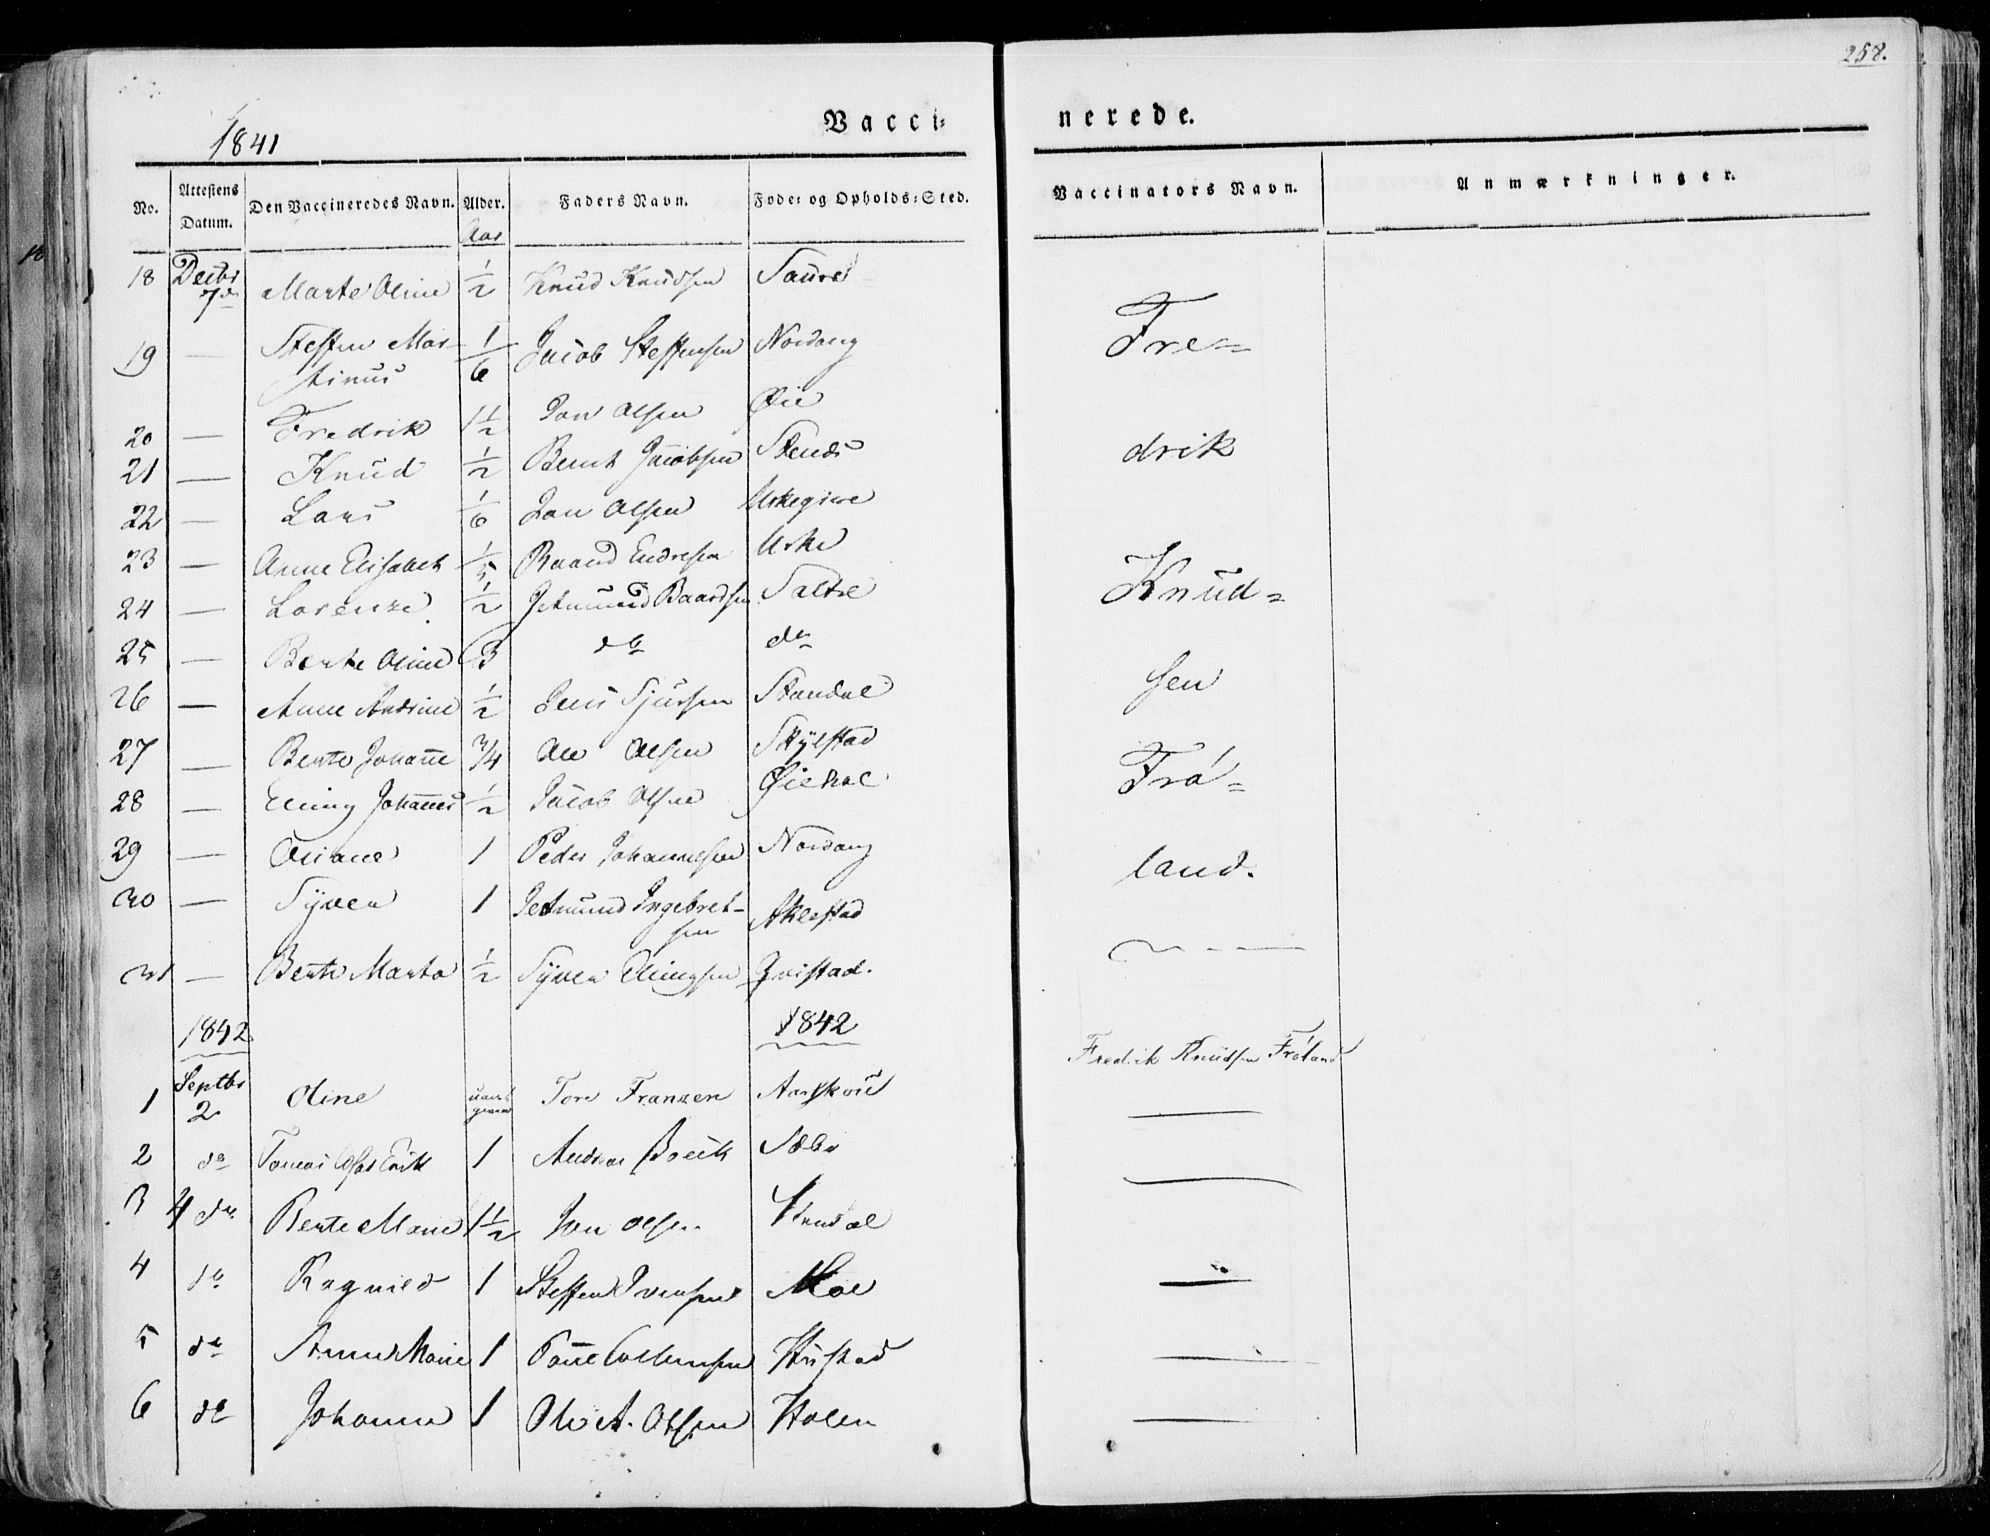 258.
1841
Vacci-
nerede.
No. Attestens Datum. Den Vaccineredes Navn. Alder. Faders Navn. Føde- og Opholds-Sted. Vaccinators Navn. Anmærkninger.
Aar
18 Decbr 7de Marte Oline 1/2 Knud Knudsen Saure
19 — Steffen Mar- 1/6 Jacob Steffensen Nordang Fre=
tinus
20 — Fredrik 1 1/2 Jon Olsen Øie
21 — Knud 1/2 Bernt Jacobsen Stends drik
22 — Lars 1/6 Jon Olsen Urkegjere
23 — Anne Elisabet 1/5 Baard Endresen Urke
24 — Lorense 1/2 Jetmund Baardsen Saltre Knud=
25 — Berte Oline 3 do do
26 — Anne Andrine 1/2 Jens Sjursen Standal sen
27 — Berte Johanne 3/4 Ole Olsen Skylstad
28 — Elling Johannes 1/2 Jacob Olsen Øiehol Frø=
29 — Oliane 1 Peder Johannesen Nordang
land.
30 — Syver 1 Jetmund Ingebret- Aklestad
sen
31 — Berte Marta 1/2 Syver Ellingsen Qvistad.
1842 1842
Fredrik Knudsen Frøland
1 Septbr 2 Oline uavet Tore Franzen Aarskoie —
2 do Tomas Olas Erik 1 Andreas Brük Sæbø —
3 4 do Berte Marie 1 1/2 Jon Olsen Standal
4 do Ragnild 1 Steffen Iversen Moe —
5 do Anne Marie 1 Paul Colbensen Hustad —
6 do Johanne 1 Ole A. Olsen Holen —